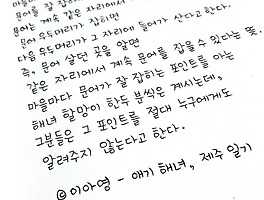 문어를 잘 잡
문어는 계속 같은 자리에서
문어 우두머리가 잡히면
다음 우두머리가 그 자리에 들어가 산다고 한다.
즉, 문어 살던 곳을 알면
같은 자리에서 계속 문어를 잡을 수 있다는 뜻.
마을마다 문어가 잘 잡히는 포인트를 아는
해녀 할망이 한두 분씩은 계시는데,
그분들은 그 포인트를 절대 누구에게도
알려주지 않는다고 한다.
ⓒ 이아영 - 애기 해녀, 제주 일기